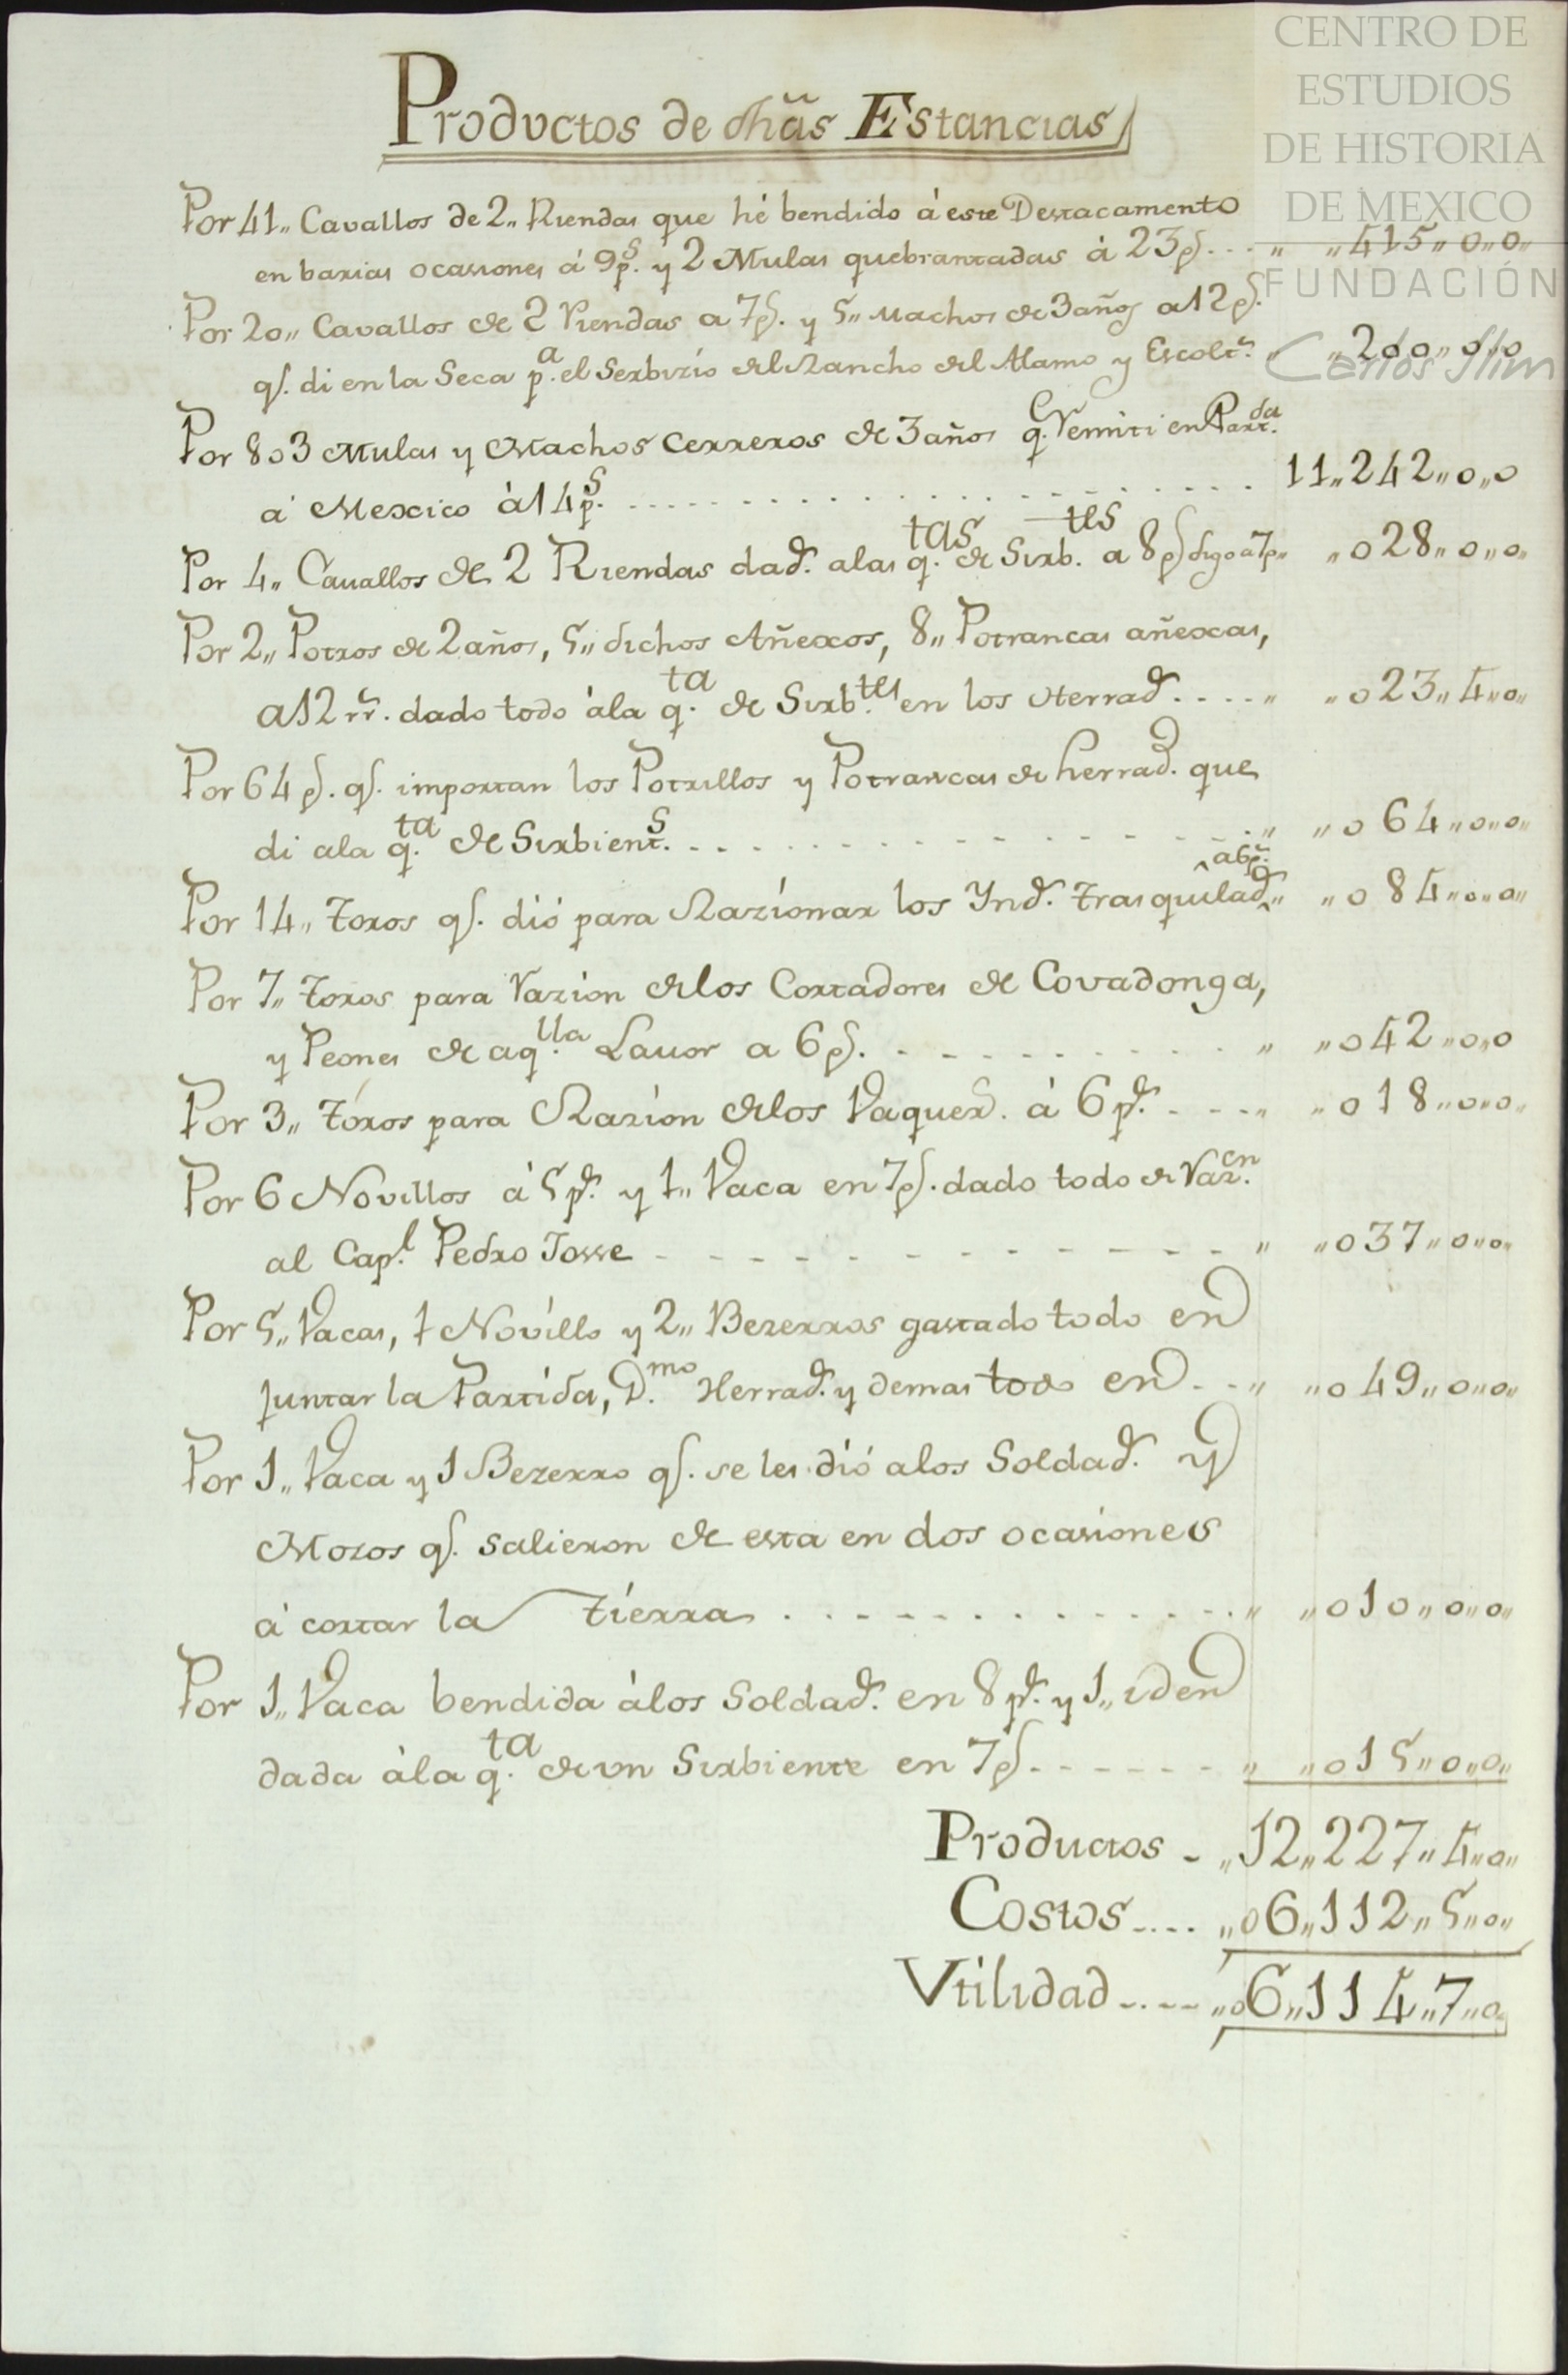 CENTRO DE
ESTUDIOS
DE HISTORIA
DE MEXICO
FUNDACIÓN
Carlos Slim
Productos de dhãs Estancias
Por 41,, Cavallos de 2,, Riendas que hé bendido á este Destacamento
en barias ocasiones á 9 p.s y 2 Mulas quebrantadas à 23 p.s ... ,, ,,415,,0,,0,,
Por 20,, Cavallos de 2 Riendas a 7 p.s y 5,, Machos de 3 años a 12 p.s
q.e di en la Seca p.a el Serbizio del Rancho del Alamo y Escolt.s ,, ,,200,,0,,0
Por 803 Mulas y Machos Cerreros de 3 años q.e Remiti en Part.da
á Mexico à 14 p.s ... 11,,242,,0,,0
Por 4,, Cauallos de 2 Riendas dad.s a las q.tas de Sirb.tes a 8 p.s digo a 7 p.,, ,,028,,0,,0,,
Por 2,, Potros de 2 años, 5,, dichos Añexos, 8,, Potrancas añexas,
a 12 rr.s dado todo à la q.ta de Sirb.tes en los Herrad.s .... ,, ,,023,,4,,0,,
Por 64 p.s q.e importan los Potrillos y Potrancas de herrad.o que
di a la q.ta de Sirbient.s ... ,, ,,064,,0,,0,,
a 6 p.s
Por 14,, Toros q.e dió para Razionar los Ynd.s Trasquilad.s ,, ,,084,,0,,0,,
Por 7,, Toros para Razion de los Cortadores de Covadonga,
y Peones de aq.lla Lauor a 6 p.s ... ,, ,,042,,0,,0
Por 3,, Toros para Razion de los Vaquer.s á 6 p.s ... ,, ,,018,,0,,0,,
Por 6 Novillos á 5 p.s y 1,, Vaca en 7 p.s dado todo de Raz.en
al Cap.l Pedro Josse ... ,, ,,037,,0,,0,,
Por 5,, Vacas, 1 Novillo y 2,, Bezerros gastado todo en
juntar la Partida, D.mo Herrad.s y demas todo en ... ,, ,,049,,0,,0,,
Por 1,, Vaca y 1 Bezerro q.e se les dió a los Soldad.s y
Mozos q.e salieron de esta en dos ocasiones
á cortar la Tierra ... ,, ,,010,,0,,0,,
Por 1,, Vaca bendida á los Soldad.s en 8 p.s y 1,, iden
dada à la q.ta de vn Sirbiente en 7 p.s ... ,, ,,015,,0,,0,,
Productos - ,,12,,227,,4,,0,,
Costos .... ,,06,,112,,5,,0,,
Vtilidad .... ,,06,,114,,7,,0,,